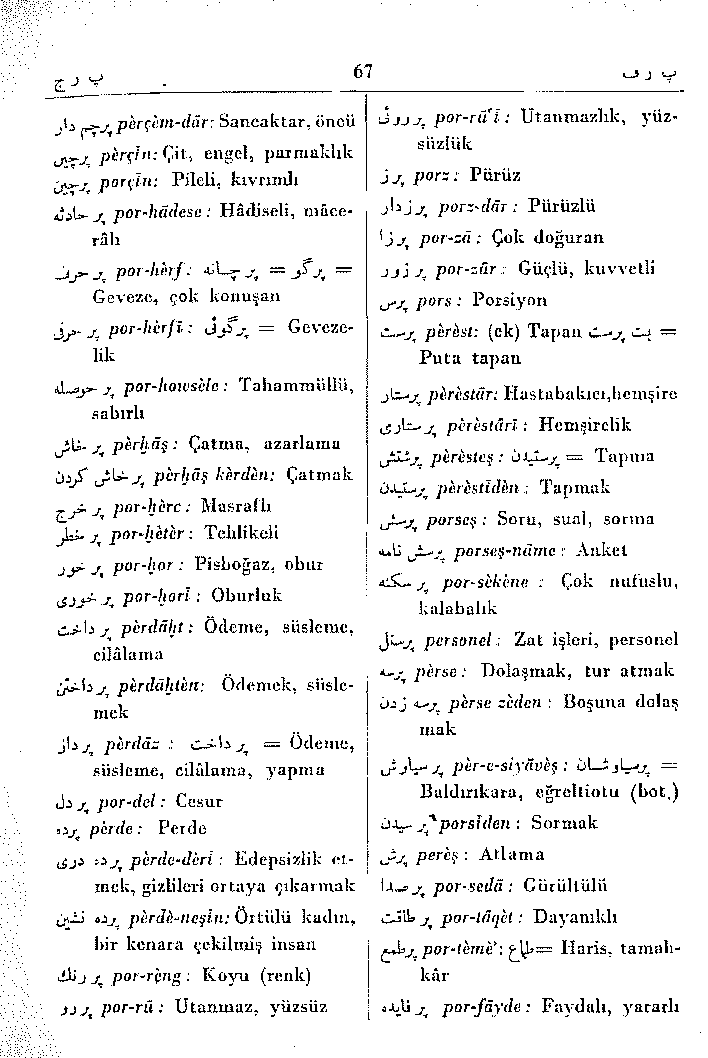 پ ر چ
67
پ ر ف
پرچم دار pèrçèm-dār: Sancaktar, öncü
پرچین pèrçīn: Çit, engel, parmaklık
پرچین porçīn: Pileli, kıvrımlı
پر حادثه por-hādese : Hâdiseli, mâce-
râlı
پر حرف por-hèrf : پر چانه = پرگو =
Geveze, çok konuşan
پر حرفی por-hèrfī : پرگوئی = Geveze-
lik
پر حوصله por-howsèle : Tahammüllü,
sabırlı
پر خاش pèrḫāş : Çatma, azarlama
پر خاش کردن pèrḫāş kèrdèn: Çatmak
پر خرج por-ḫèrc : Masraflı
پر خطر por-ḫètèr : Tehlikeli
پر خور por-ḫor : Pisboğaz, obur
پر خوری por-ḫorī : Oburluk
پر داخت pèrdāḫt : Ödeme, süsleme,
cilâlama
پر داختن pèrdāḫtèn: Ödemek, süsle-
mek
پر داز pèrdāz : پر داخت = Ödeme,
süsleme, cilâlama, yapma
پر دل por-del : Cesur
پرده pèrde : Perde
پرده دری pèrde-dèrī : Edepsizlik et-
mek, gizlileri ortaya çıkarmak
پرده نشین pèrdè-neşīn: Örtülü kadın,
bir kenara çekilmiş insan
پر رنگ por-rèng : Koyu (renk)
پر رو por-rū : Utanmaz, yüzsüz
پر روئی por-rū'ī : Utanmazlık, yüz-
süzlük
پرز porz : Pürüz
پرزدار porz-dār : Pürüzlü
پر زا por-zā : Çok doğuran
پر زور por-zūr : Güçlü, kuvvetli
پرس pors : Porsiyon
پرست pèrèst: (ek) Tapan بت پرست =
Puta tapan
پرستار pèrèstār: Hastabakıcı,hemşire
پرستاری pèrèstārī : Hemşirelik
پرستش pèrèsteş : پرستیدن = Tapma
پرستیدن pèrèstīdèn : Tapmak
پرسش porseş : Soru, sual, sorma
پرسش نامه porseş-nāme : Anket
پر سکنه por-sèkène : Çok nufuslu,
kalabalık
پرسنل personel : Zat işleri, personel
پرسه pèrse : Dolaşmak, tur atmak
پرسه زدن pèrse zèden : Boşuna dolaş
mak
پر سیاوشان pèr-e-siyāvèş : پرسیاوش =
Baldırıkara, eğreltiotu (bot.)
پر سیدن porsīden : Sormak
پرش pereş : Atlama
پر صدا por-sedā : Gürültülü
پر طاقت por-tāqèt : Dayanıklı
پرطمع por-tèmè' : طماع = Haris, tamah-
kâr
پر فایده por-fāyde : Faydalı, yararlı